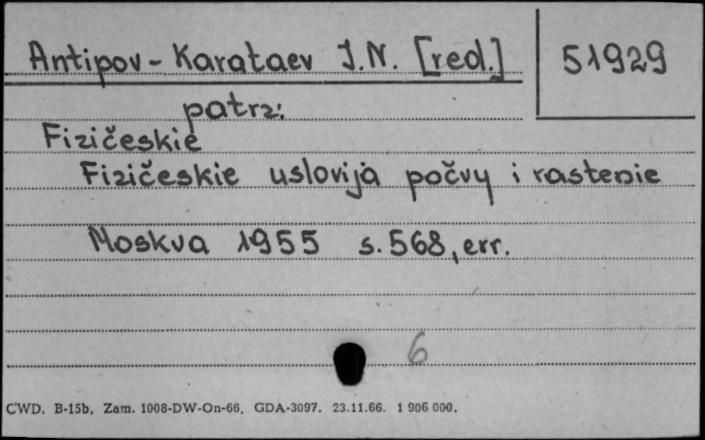 Antipov-Karataev J.N. [red.]
51929
patrz:
Fizičeskie
Fizičeskie uslovija počvy i rastenie
Moskva 1955 s. 568, err.
6
CWD. B-15b. Zam. 1008-DW-On-66. GDA-3097. 23.11.66. 1 906 000.